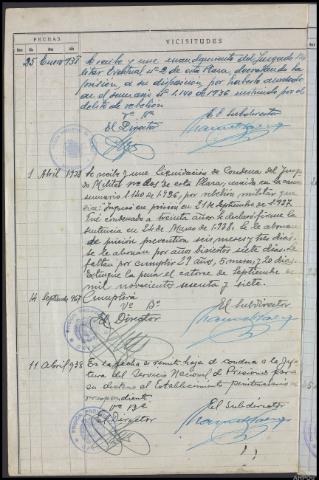 FECHAS
VICISITUDES
Día Mes Año
25 Enero 938 Se recibe y une mandamiento del Juzgado Mi-
litar Eventual nº 2 de esta Plaza, decretando la
prisión, a su disposición por haberlo acordado
en el sumario nº 1.140 de 1936 instruido por el
delito de rebelión
Vº Bº
El Director El Subdirector
1 Abril 1938 Se recibe y une Liquidación de Condena del Juzgo
Militar nº dos de esta Plaza, recaida en la causa
sumario 1.140 de 1936, por rebelión militar que
dice: Ingresó en prisión en 21 de Septiembre de 1937.
Fué condenado a treinta años se declaró firme la
sentencia en 24 de Marzo de 1938, se le abonan
de prisión preventiva seis meses y tres días.
se le abonan por años bisiestos siete días, le
faltan por cumplir 29 años, 5 meses y días.
Extingue la pena el catorce de Septiembre de
mil novecientos sesenta y siete.
14 Septiembre 967 Cumplirá
Vº Bº
El Director El Subdirector
11 Abril 938 En la fecha se remite hoja de condena a la Jefa-
tura del Servicio Nacional de Prisiones para
su destino al Establecimiento penitenciario co-
rrespondiente.
Vº Bº
El Director El Subdirector